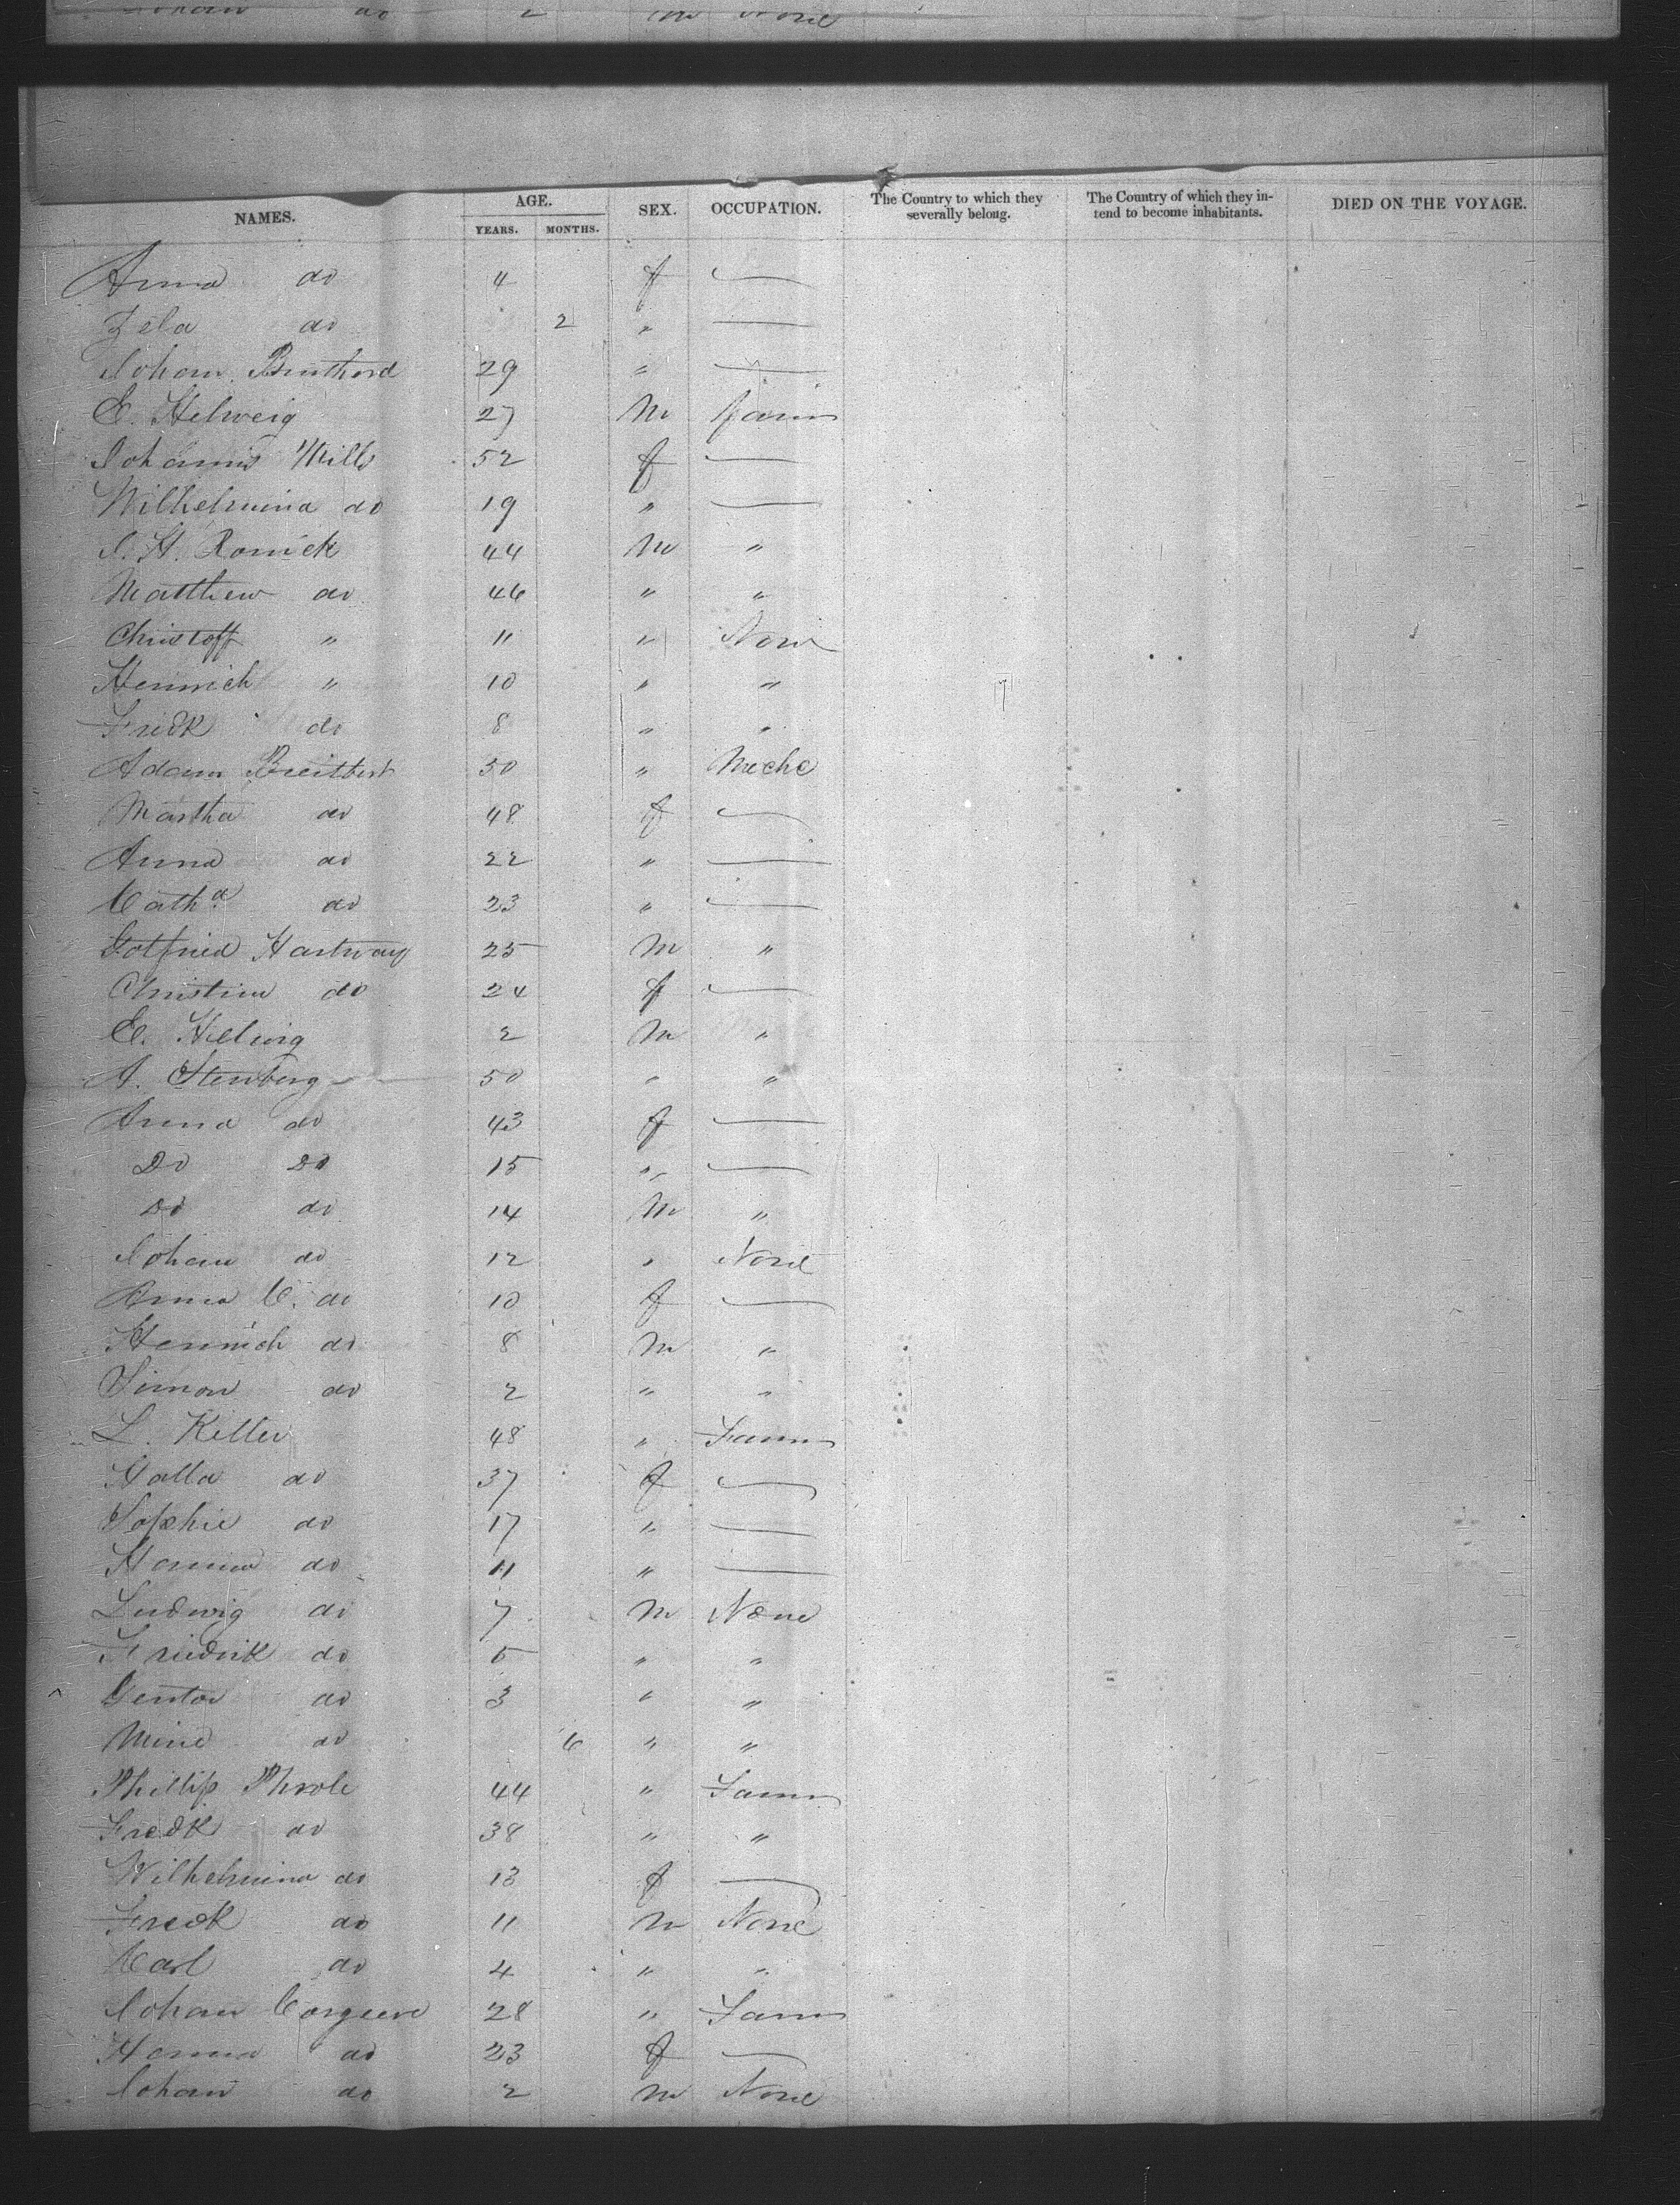 Johan do 2 m None
NAMES. AGE. YEARS. MONTHS. SEX. OCCUPATION. The Country to which they severally belong. The Country of which they intend to become inhabitants. DIED ON THE VOYAGE.
Anna do 4 f —
Zela do 2 " —
Johan 29 " —
E. Helweig 27 M farm
Johanns Mills 52 f —
Wilhelmina do 19 " —
J. H. Romick 44 M "
Matthew do 46 " "
Christoff " 11 " None
Hennrich " 10 " "
Fredk do 8 " "
Adam 50 " Mechc
Martha do 48 f —
Anna do 22 " —
Catha do 23 " —
Gotfried Hartwag 25 M "
Christina do 24 f —
E. Helwig 2 M "
A. Stenberg 50 " "
Anna do 43 f —
Do Do 15 " —
Do do 14 M "
Johan do 12 " None
Anna C. do 10 f —
Hennrich do 8 M "
Simon do 2 " "
L. Keller 48 " Farm
Halla do 37 f —
Sophie do 17 " —
Hanna do 11 " —
Ludwig do 7 M None
Friedrik do 5 " "
Gentor do 3 " "
Mine do 6 " "
Phillip 44 " Farm
Fredk do 38 " "
Wilhelmina do 13 f —
Fredk do 11 M None
Carl do 4 " "
Johan 28 " Farm
Hanna do 23 f —
Johan do 2 M None